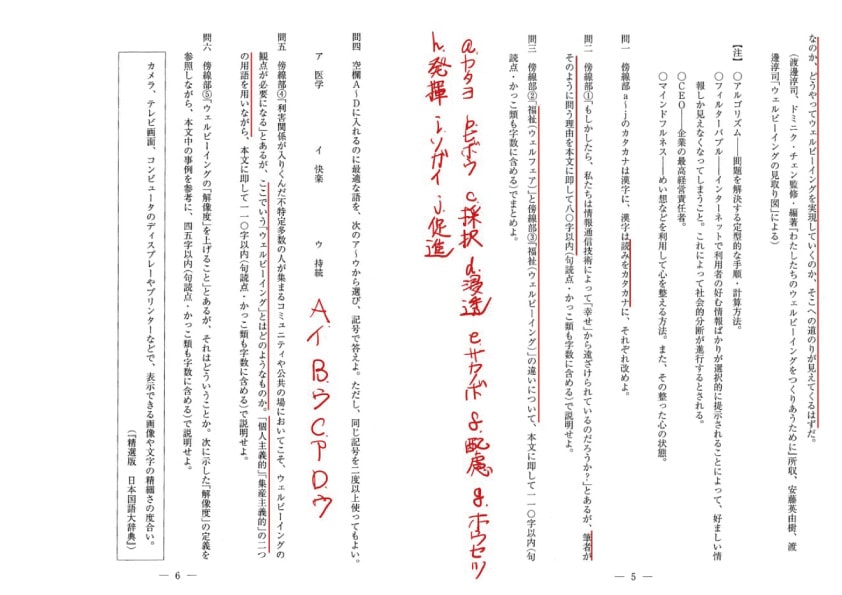 なのか、どうやってウェルビーイングを実現していくのか、そこへの道のりが見えてくるはずだ。
（渡邊淳司、ドミニク・チェン監修・編著『わたしたちのウェルビーイングをつくりあうために』所収、安藤英由樹、渡
邊淳司「ウェルビーイングの見取り図」による）
【注】 〇アルゴリズム――問題を解決する定型的な手順・計算方法。
〇フィルターバブル――インターネットで利用者の好む情報ばかりが選択的に提示されることによって、好ましい情
報しか見えなくなってしまうこと。これによって社会的分断が進行するとされる。
〇CEO――企業の最高経営責任者。
〇マインドフルネス――めい想などを利用して心を整える方法。また、その整った心の状態。
問一 傍線部a～jのカタカナは漢字に、漢字は読みをカタカナに、それぞれ改めよ。
問二 傍線部①「もしかしたら、私たちは情報通信技術によって『幸せ』から遠ざけられているのだろうか?」とあるが、筆者が
そのように問う理由を本文に即して八〇字以内（句読点・かっこ類も字数に含める）で説明せよ。
問三 傍線部②「福祉（ウェルフェア）」と傍線部③「福祉（ウェルビーイング）」の違いについて、本文に即して一一〇字以内（句
読点・かっこ類も字数に含める）でまとめよ。
a.カタヨ b.ビボウ c.採択 d.浸透 e.サカノボ f.配慮 g.ホウセツ
h.発揮 i.ソガイ j.促進
― 5 ―
問四 空欄A～Dに入れるのに最適な語を、次のア～ウから選び、記号で答えよ。ただし、同じ記号を二度以上使ってもよい。
ア 医学 イ 快楽 ウ 持続
A.イ B.ウ C.ア D.ウ
問五 傍線部④「利害関係が入りくんだ不特定多数の人が集まるコミュニティや公共の場においてこそ、ウェルビーイングの
観点が必要になる」とあるが、ここでいう「ウェルビーイング」とはどのようなものか。「個人主義的」「集産主義的」の二つ
の用語を用いながら、本文に即して一一〇字以内（句読点・かっこ類も字数に含める）で説明せよ。
問六 傍線部⑤「ウェルビーイングの『解像度』を上げること」とあるが、それはどういうことか。次に示した「解像度」の定義を
参照しながら、本文中の事例を参考に、四五字以内（句読点・かっこ類も字数に含める）で説明せよ。
カメラ、テレビ画面、コンピュータのディスプレーやプリンターなどで、表示できる画像や文字の精細さの度合い。
（『精選版 日本国語大辞典』）
― 6 ―